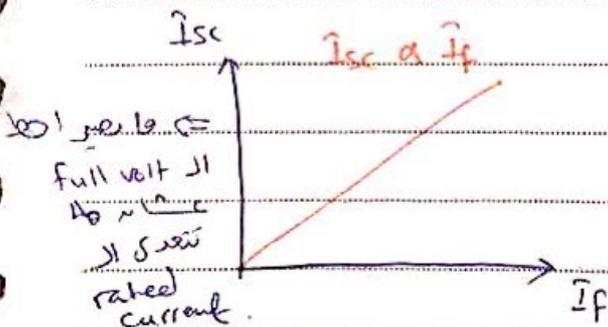 Isc
Isc α If
⇐ ما بصير احط
ال full volt
عشان ما
تتعدى ال
rated
current.
If